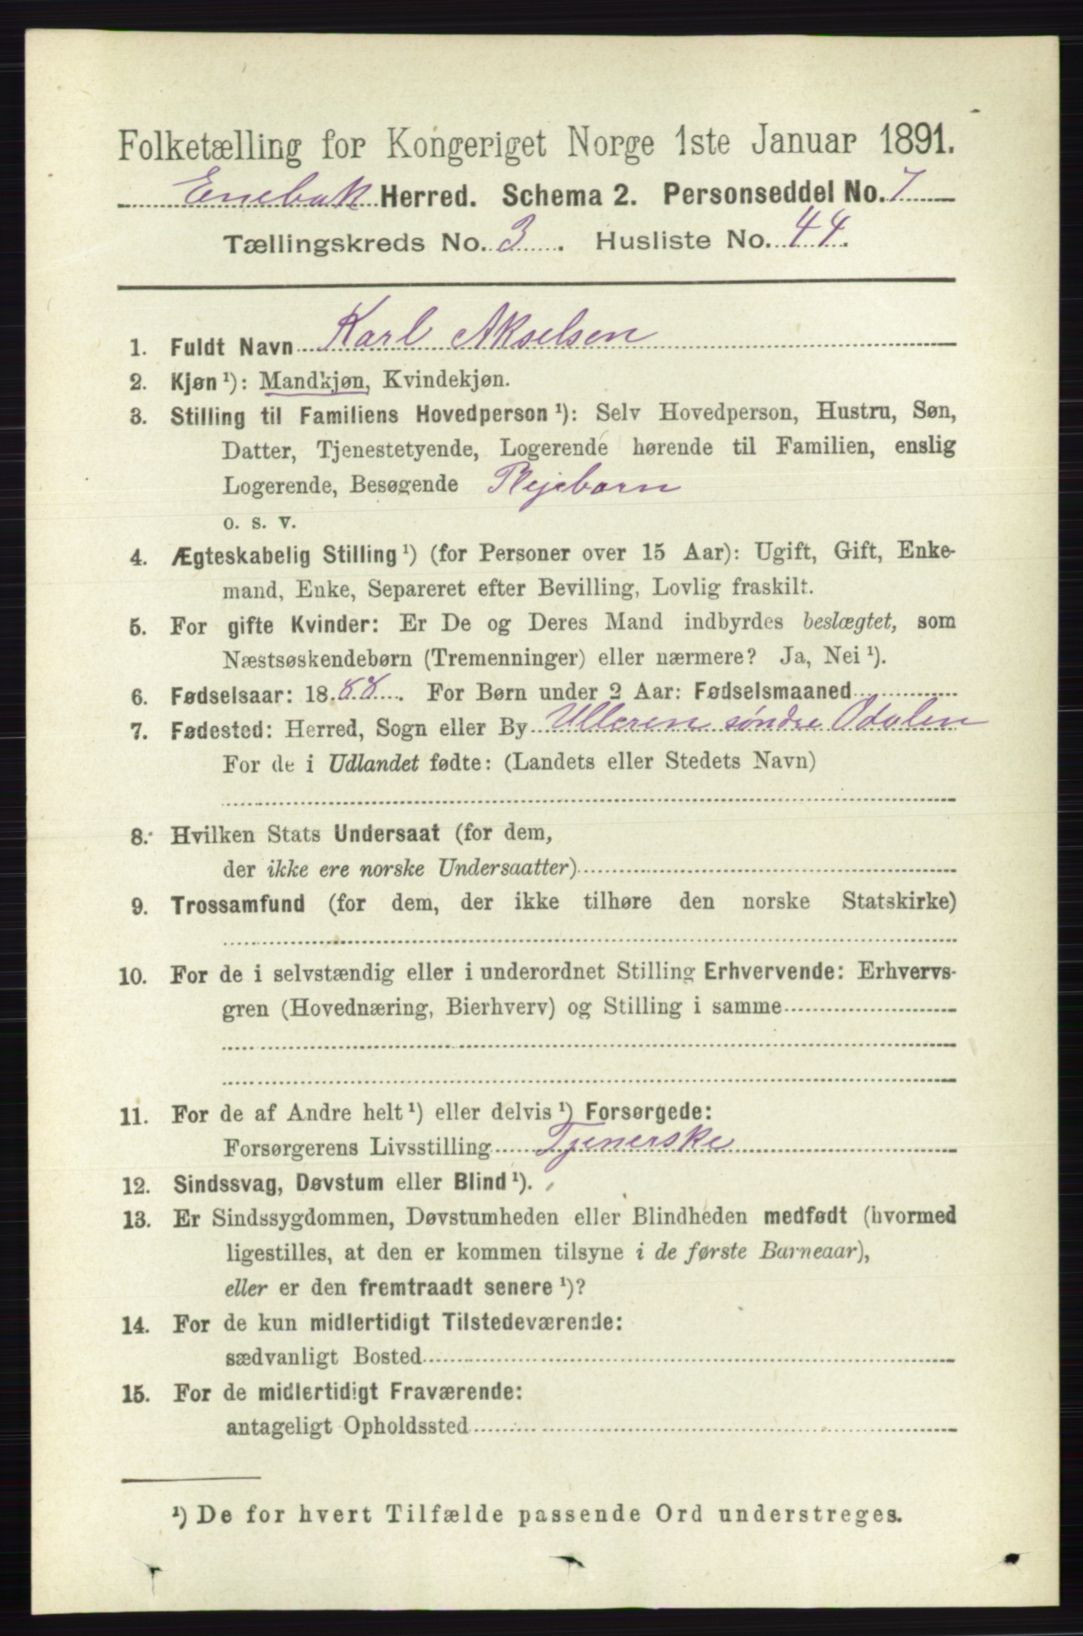 Folketælling for Kongeriget Norge 1ste Januar 1891.
Enebak Herred. Schema 2. Personseddel No. 7
Tællingskreds No. 3. Husliste No. 44.
1. Fuldt Navn Karl Akselsen
2. Kjøn ¹): Mandkjøn, Kvindekjøn.
3. Stilling til Familiens Hovedperson ¹): Selv Hovedperson, Hustru, Søn,
Datter, Tjenestetyende, Logerende hørende til Familien, enslig
Logerende, Besøgende Plejebarn
o. s. v.
4. Ægteskabelig Stilling ¹) (for Personer over 15 Aar): Ugift, Gift, Enke-
mand, Enke, Separeret efter Bevilling, Lovlig fraskilt.
5. For gifte Kvinder: Er De og Deres Mand indbyrdes beslægtet, som
Næstsøskendebørn (Tremenninger) eller nærmere? Ja, Nei ¹).
6. Fødselsaar: 1888. For Børn under 2 Aar: Fødselsmaaned
7. Fødested: Herred, Sogn eller By Ulleren søndre Odalen
For de i Udlandet fødte: (Landets eller Stedets Navn)
8. Hvilken Stats Undersaat (for dem,
der ikke ere norske Undersaatter)
9. Trossamfund (for dem, der ikke tilhøre den norske Statskirke)
10. For de i selvstændig eller i underordnet Stilling Erhvervende: Erhvervs-
gren (Hovednæring, Bierhverv) og Stilling i samme
11. For de af Andre helt ¹) eller delvis ¹) Forsørgede:
Forsørgerens Livsstilling Tjenerske
12. Sindssvag, Døvstum eller Blind ¹).
13. Er Sindssygdommen, Døvstumheden eller Blindheden medfødt (hvormed
ligestilles, at den er kommen tilsyne i de første Barneaar),
eller er den fremtraadt senere ¹)?
14. For de kun midlertidigt Tilstedeværende:
sædvanligt Bosted
15. For de midlertidigt Fraværende:
antageligt Opholdssted
¹) De for hvert Tilfælde passende Ord understreges.